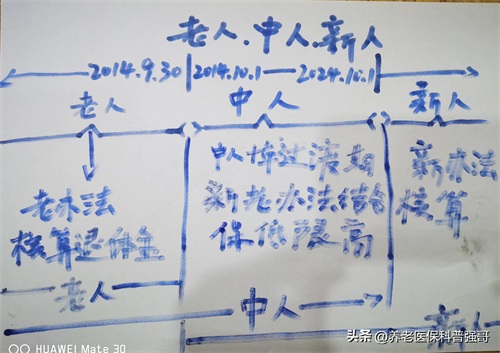 老人、中人、新人
2014.9.30 2014.10.1——2024.10.1
老人 中人 新人
老办法
核算退休金
中人 过渡期
新老办法结合
保低限高
新办法
核算
老人
中人
新人
HUAWEI Mate 30
头条 @养老医保科普强哥